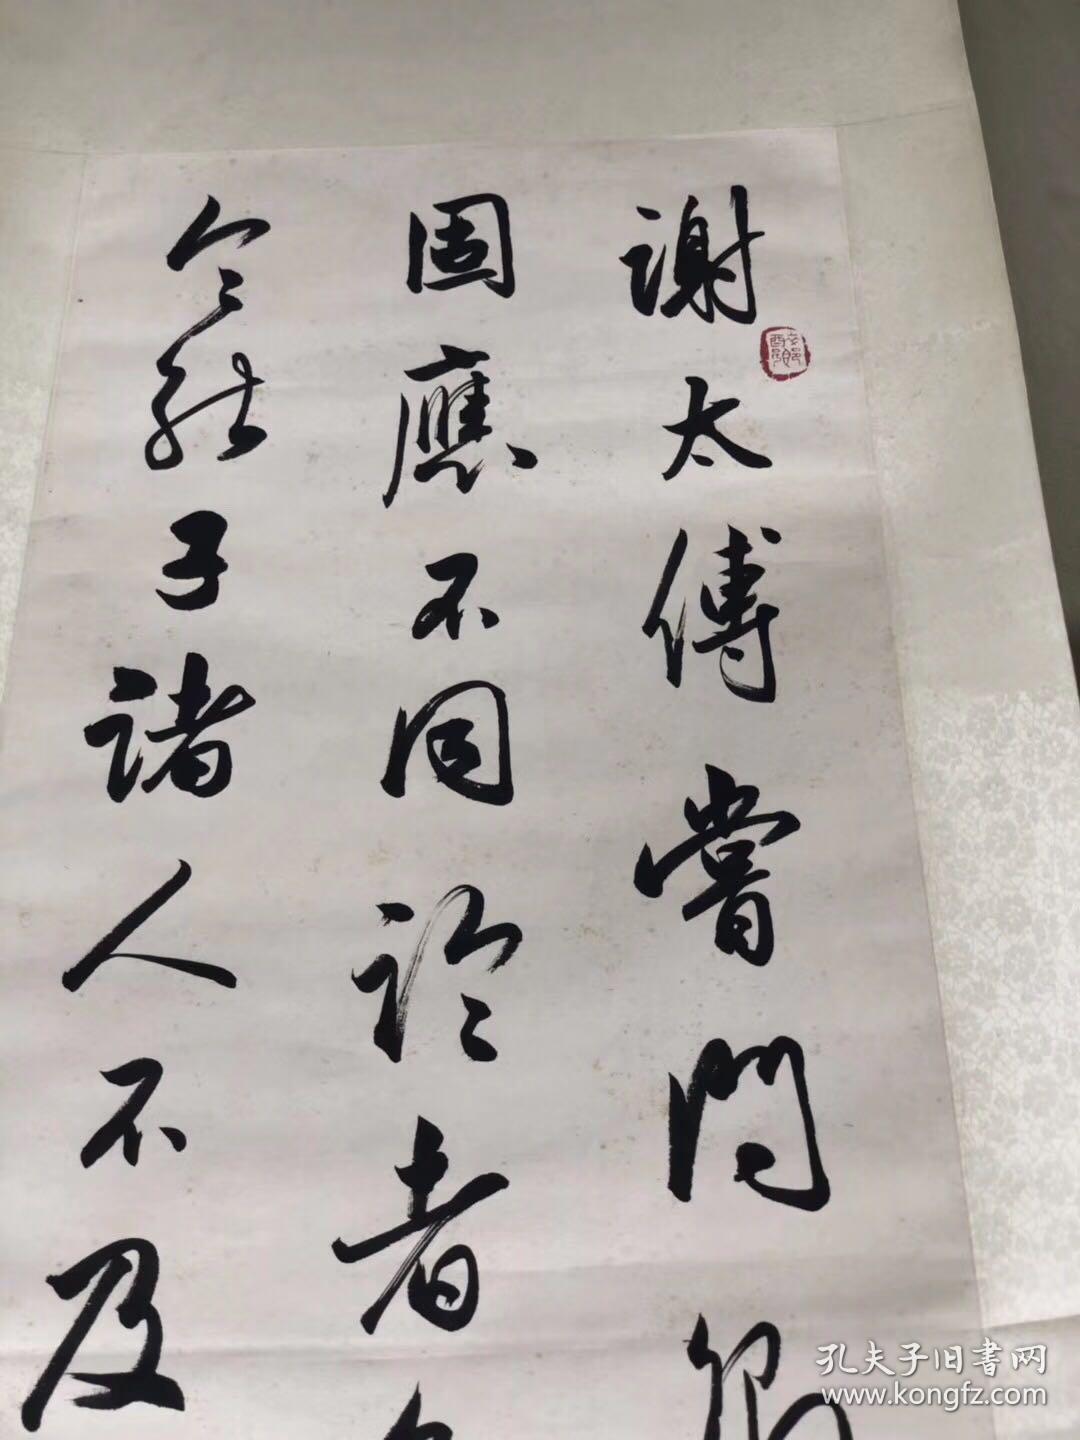 謝太傅嘗問
固應不同論者
令能子諸人不及
孔夫子旧書网
www.kongfz.com